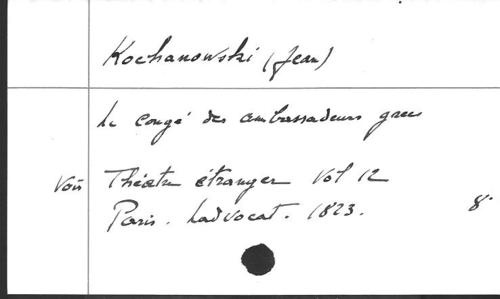 Kochanowski (Jean)
Le congé des ambassadeurs grecs
Voir Théatre étranger Vol 12
Paris. Ladvocat. 1823. 8°